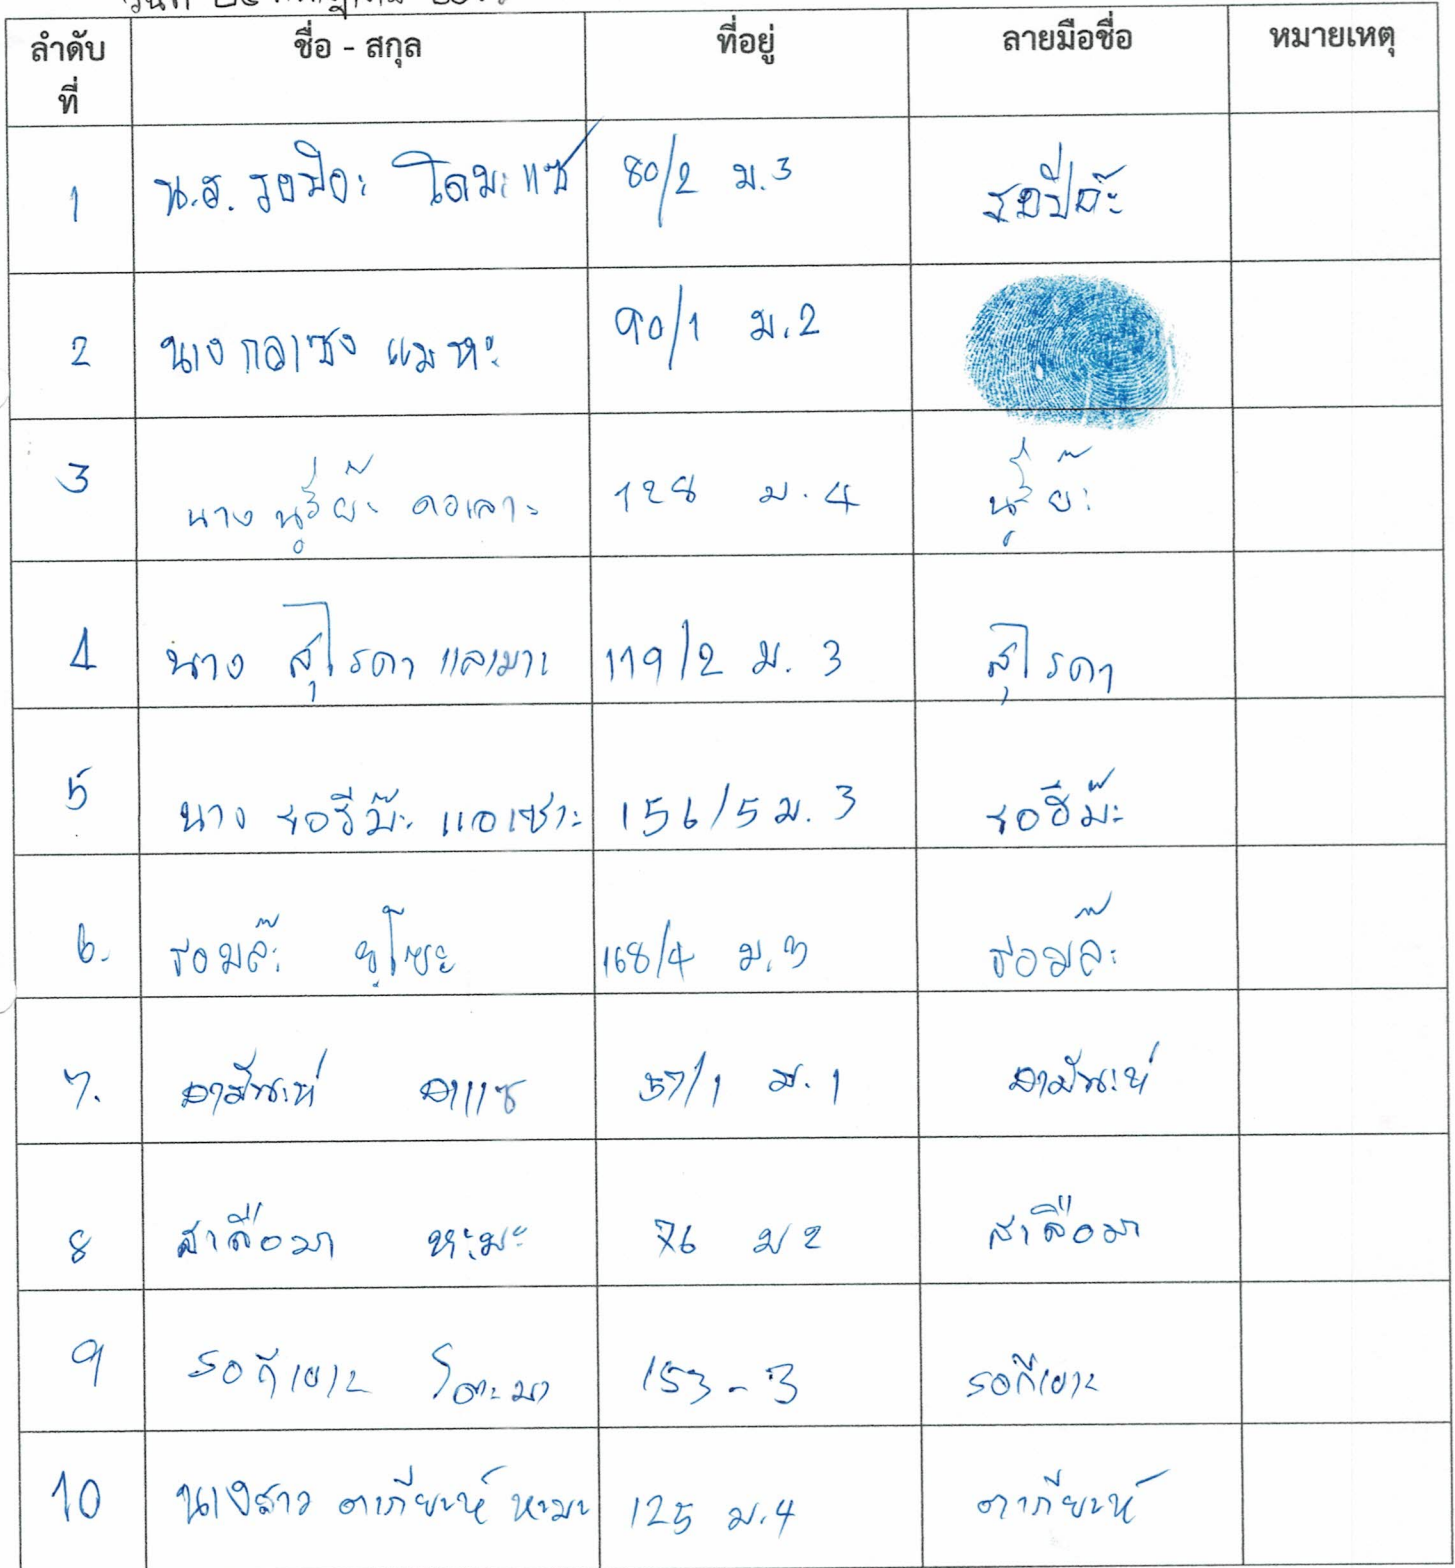 ลำดับที่ ชื่อ - สกุล ที่อยู่ ลายมือชื่อ หมายเหตุ
1 น.ส. รอปิอะ โตมะแซ 80/2 ม.3 รอปีอ๊ะ
2 นาง กอเซง แมหะ 90/1 ม.2
3 นาง นูรี่ย๊ะ ดอเลาะ 128 ม.4 นูรี่ย๊ะ
4 นาง สุไรดา แลเมาะ 119/2 ม. 3 สุไรดา
5 นาง รอฮีม๊ะ แอเซาะ 156/5 ม. 3 รอฮีม๊ะ
6. รอมล๊ะ ยูโซะ 168/4 ม.3 รอมล๊ะ
7. อามีเนาะห์ อาแซ 57/1 ม.1 
8 สาลือมา หะมะ 76 ม 2 สาลือมา
9 รอกีเยาะ โตะมา 153-3 รอกีเยาะ
10 นางสาว ตากียะห์ หะมะ 125 ม.4 ตากียะห์